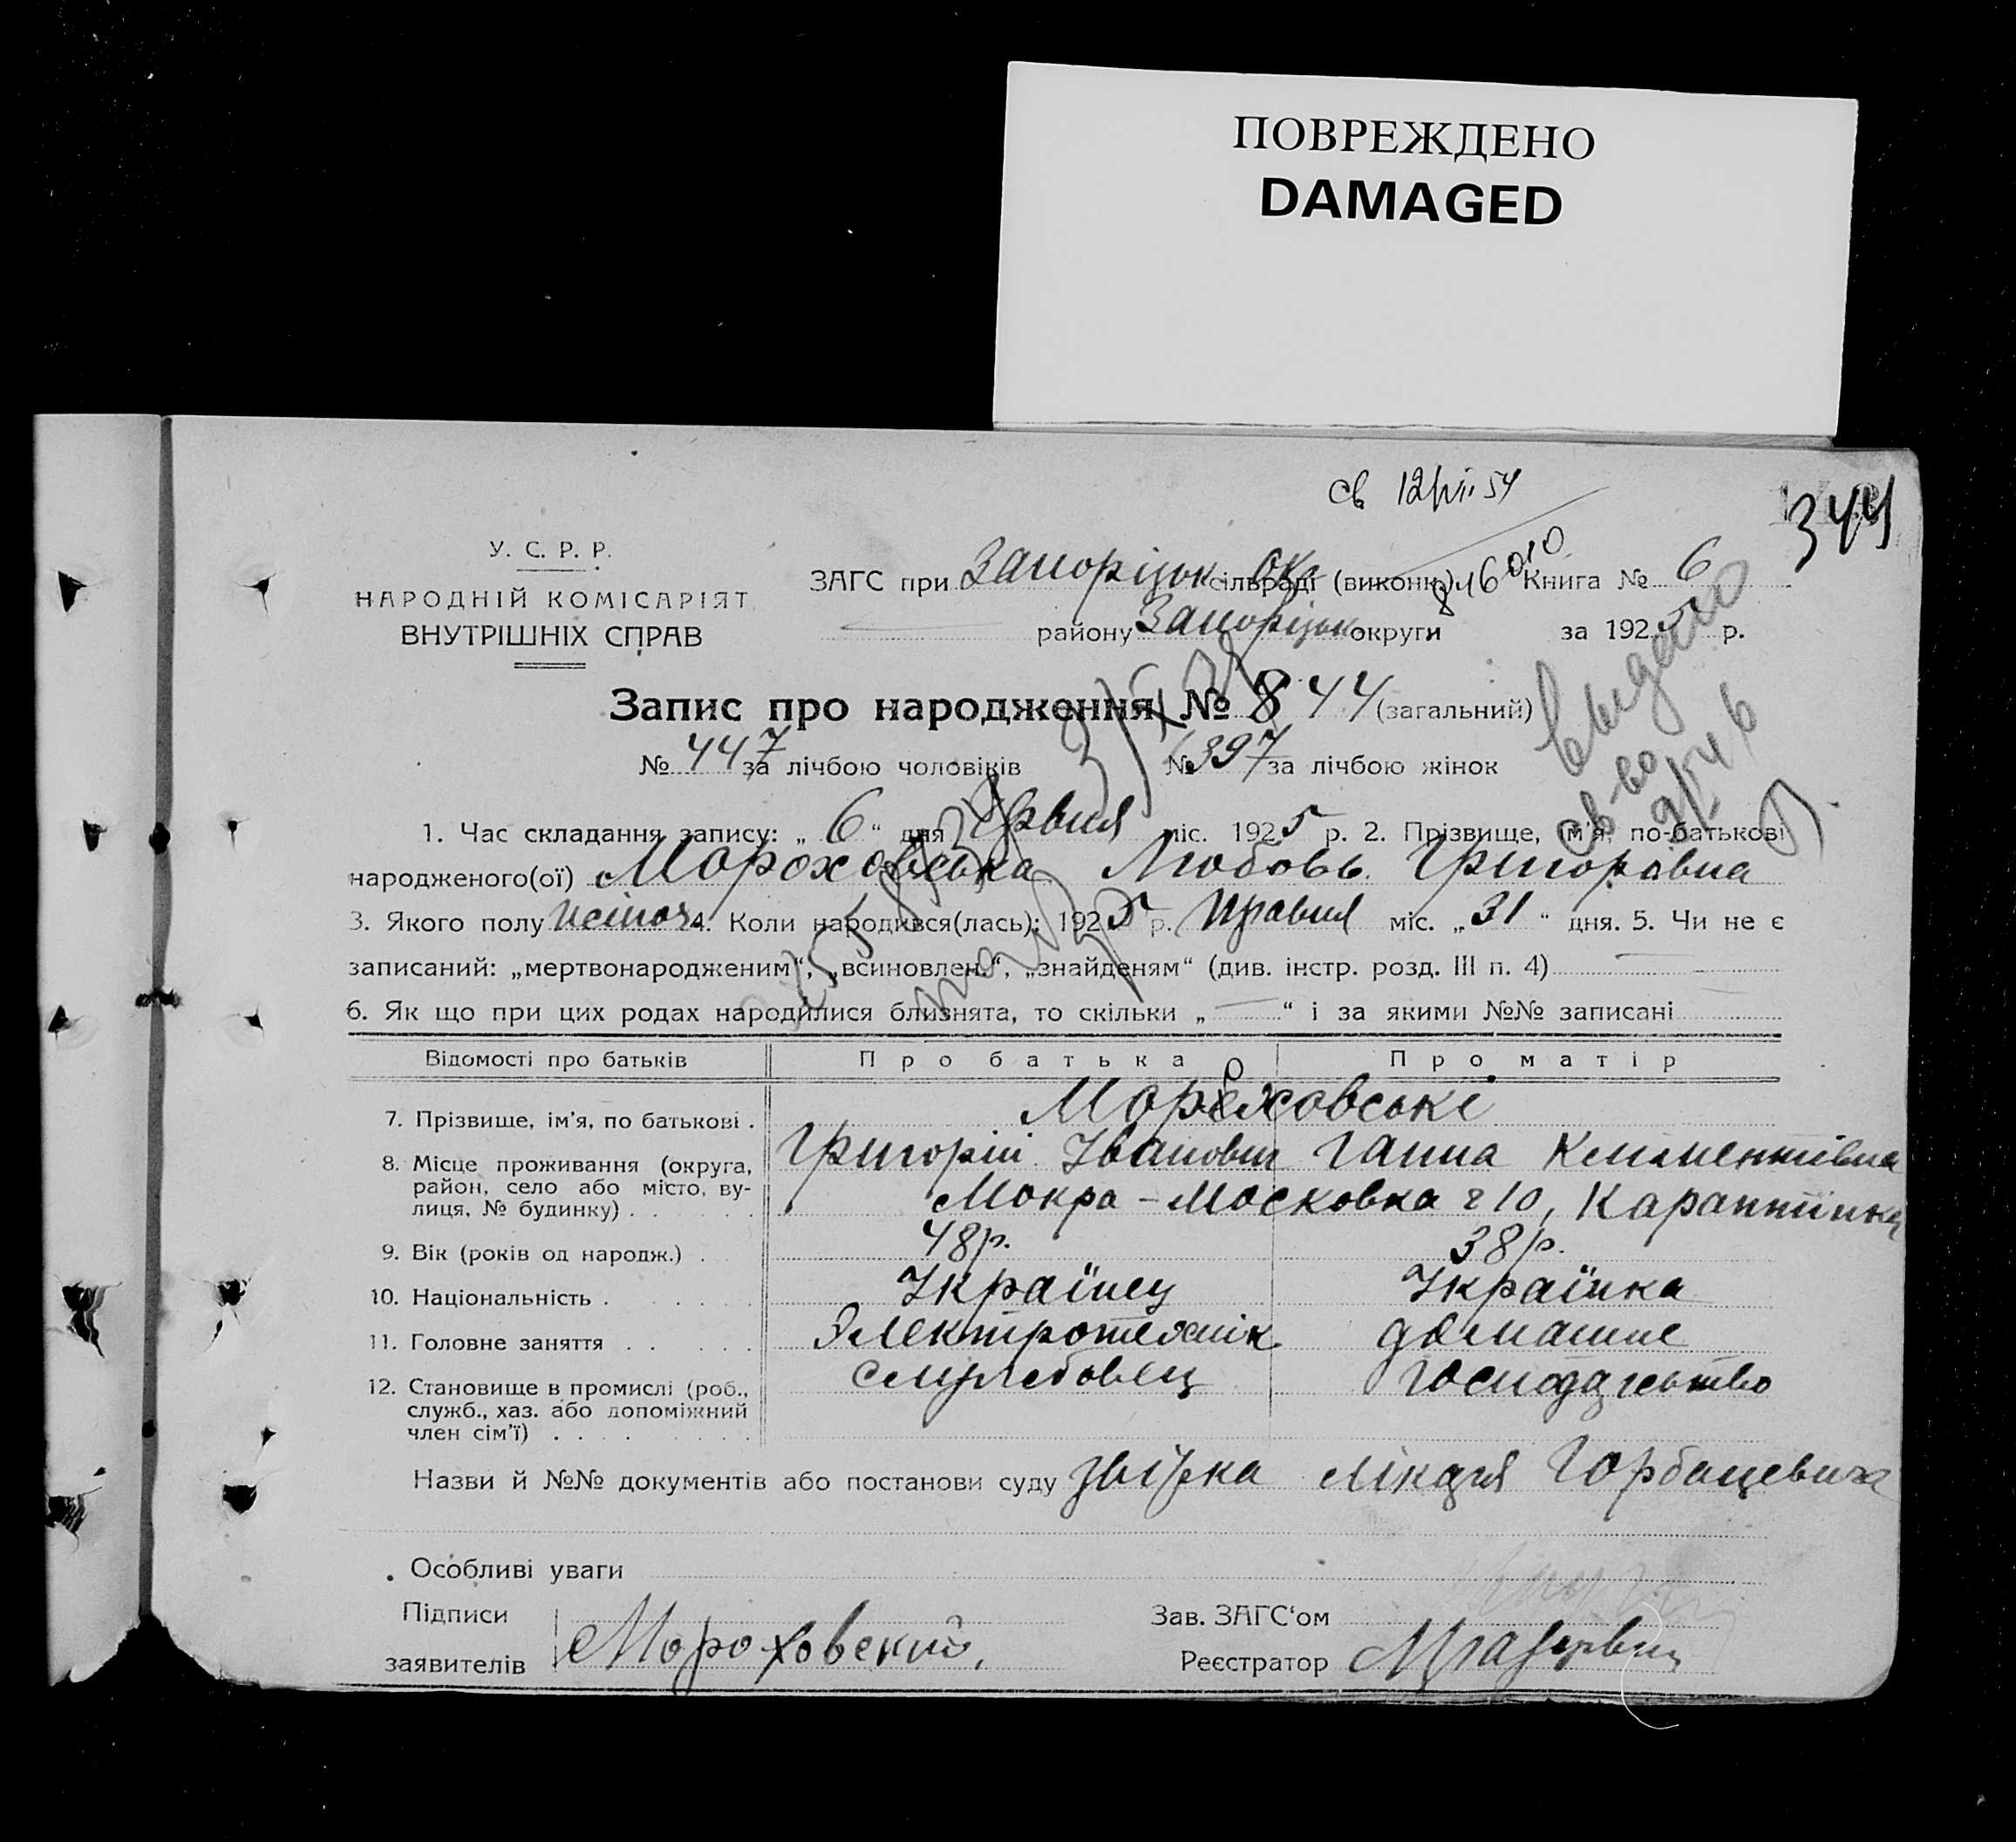 ПОВРЕЖДЕНО
DAMAGED
св 12/VII 54
344
У. С. Р. Р.
НАРОДНІЙ КОМІСАРІЯТ
ВНУТРІШНІХ СПРАВ
ЗАГС при Запоріцьк окр сільраді (виконк.) Книга № 6
району Запоріцьк округи за 1925 р.
Запис про народження № 844 (загальний)
№ 447 за лічбою чоловіків № 397 за лічбою жінок
видано
св-во
1. Час складання запису: „ 6 “ дня Червня міс. 1925 р. 2. Прізвище, ім’я, по-батькові
народженого(ої) Мороховська Любовь Григоровна
3. Якого полу жіноч 4. Коли народився(лась): 1925 р. Травня міс. „ 31 “ дня. 5. Чи не є
записаний: „мертвонародженим“, „всиновлен.“, „знайденям“ (див. інстр. розд. III п. 4)
6. Як що при цих родах народилися близнята, то скільки „ — “ і за якими №№ записані
Відомості про батьків Про батька Про матір
7. Прізвище, ім’я, по батькові . Мороховські
Григорій Іванович Ганна Климентівна
8. Місце проживання (округа, район, село або місто, вулиця, № будинку) . Мокра-Московка 10,
9. Вік (років од народж.) . 48 р. 38 р.
10. Національність . Українец Українка
11. Головне заняття . . Электротехнік домашнє
12. Становище в промислі (роб., служб., хаз. або допоміжний член сім’ї) . служебовец господарьство
Назви й №№ документів або постанови суду звістка лікаря Горбацевича
Особливі уваги
Підписи
заявителів Мороховский.
Зав. ЗАГС‘ом
Реєстратор